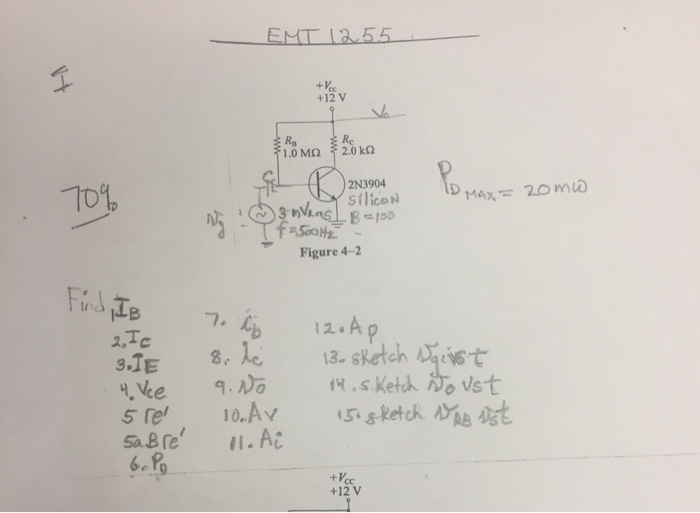 EMT 1255
I
+Vcc
+12 V
Vo
RB
1.0 MΩ
RC
2.0 kΩ
2N3904
Silicon
B=100
PD MAX = 20mW
70%
Vg
3 mVRMS
f=500Hz
Figure 4–2
Find
1. IB
2. Ic
3. IE
4. Vce
5 re'
5a. Bre'
6. PD
7. ib
8. ic
9. Vo
10. Av
11. Ai
12. Ap
13. sketch Vg vs t
14. sketch Vo vs t
15. sketch VRB vs t
+VCC
+12 V